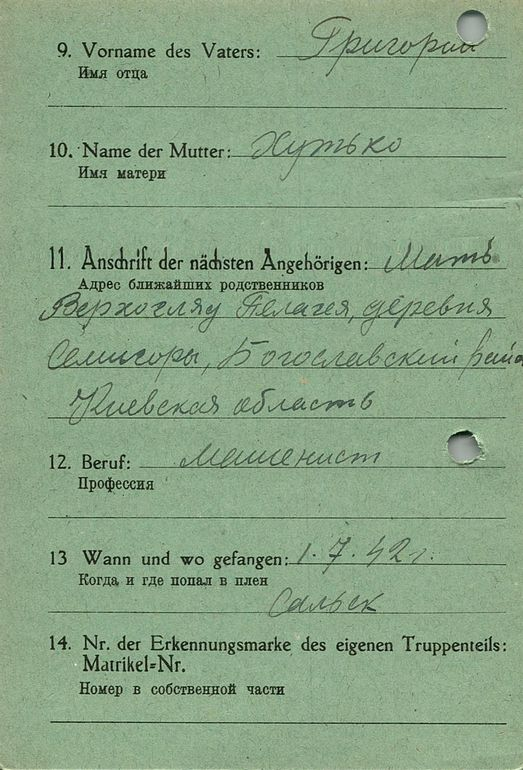 9. Vorname des Vaters: Григорий
Имя отца
10. Name der Mutter: Хутько
Имя матери
11. Anschrift der nächsten Angehörigen: Мать
Адрес ближайших родственников
Верхогляд Пелагея, деревня
Семигоры, Богославский район
Киевская область
12. Beruf: машенист
Профессия
13 Wann und wo gefangen: 1.7.42 г.
Когда и где попал в плен
Сальск
14. Nr. der Erkennungsmarke des eigenen Truppenteils:
Matrikel=Nr.
Номер в собственной части